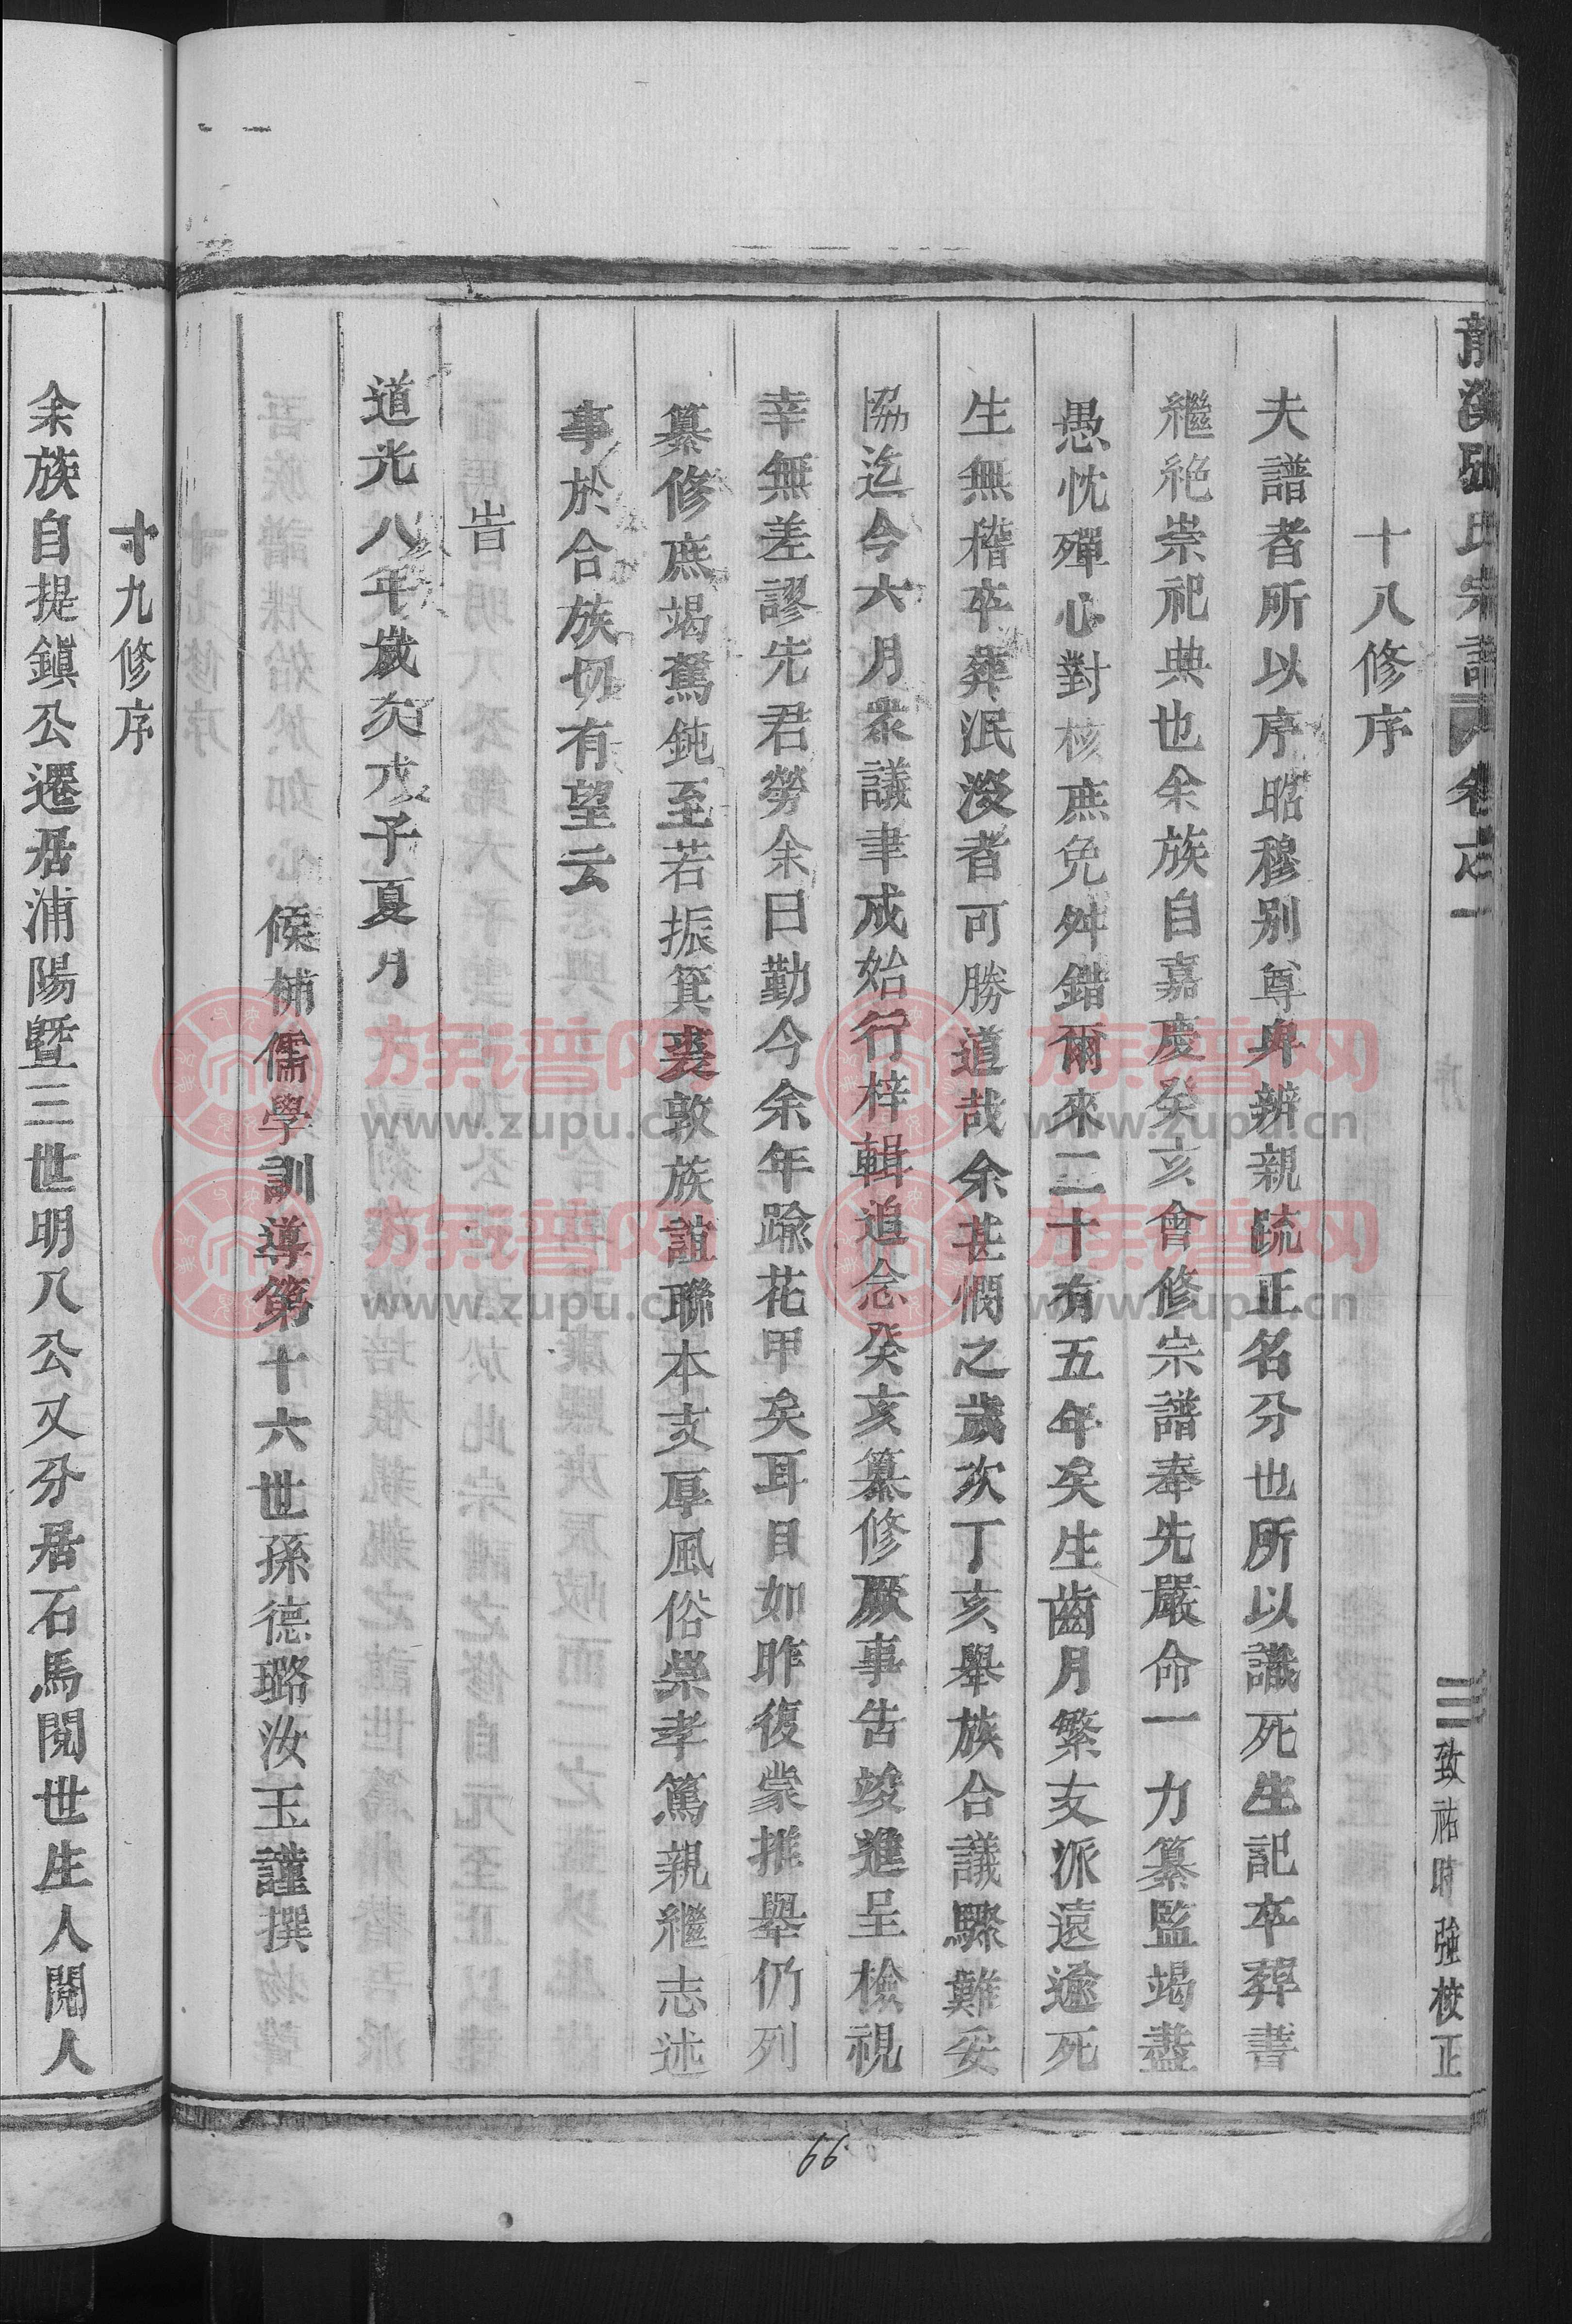 龍溪張氏宗譜 卷之一
致祐時強校正
十八修序
夫譜者所以序昭穆别尊卑辨親疏正名分也所以識死生記卒葬書
繼絶崇祀典也余族自嘉慶癸亥會修宗譜奉先嚴命一力纂監竭盡
愚忱殫心對核庶免舛錯爾來二十有五年矣生齒月繁支派遠逾死
生無稽卒葬泯没者可勝道哉余甚憫之歲次丁亥舉族合議驟難妥
協迄今六月衆議聿成始行梓輯追念癸亥纂修厥事告竣進呈檢視
幸無差謬先君勞余曰勤今余年踰花甲矣耳目如昨復蒙推舉仍列
纂修庶竭駑鈍至若振箕裘敦族誼聯本支厚風俗崇孝篤親繼志述
事於合族切有望云
旹
道光八年歲次戊子夏月
候補儒學訓導第十六世孫德璐汝玉謹撰
十九修序
余族自提鎮公遷居浦陽暨三世明八公又分居石馬閱世生人閱人
族谱网
www.zupu.cn
族谱网
www.zupu.cn
族谱网
www.zupu.cn
族谱网
www.zupu.cn
66